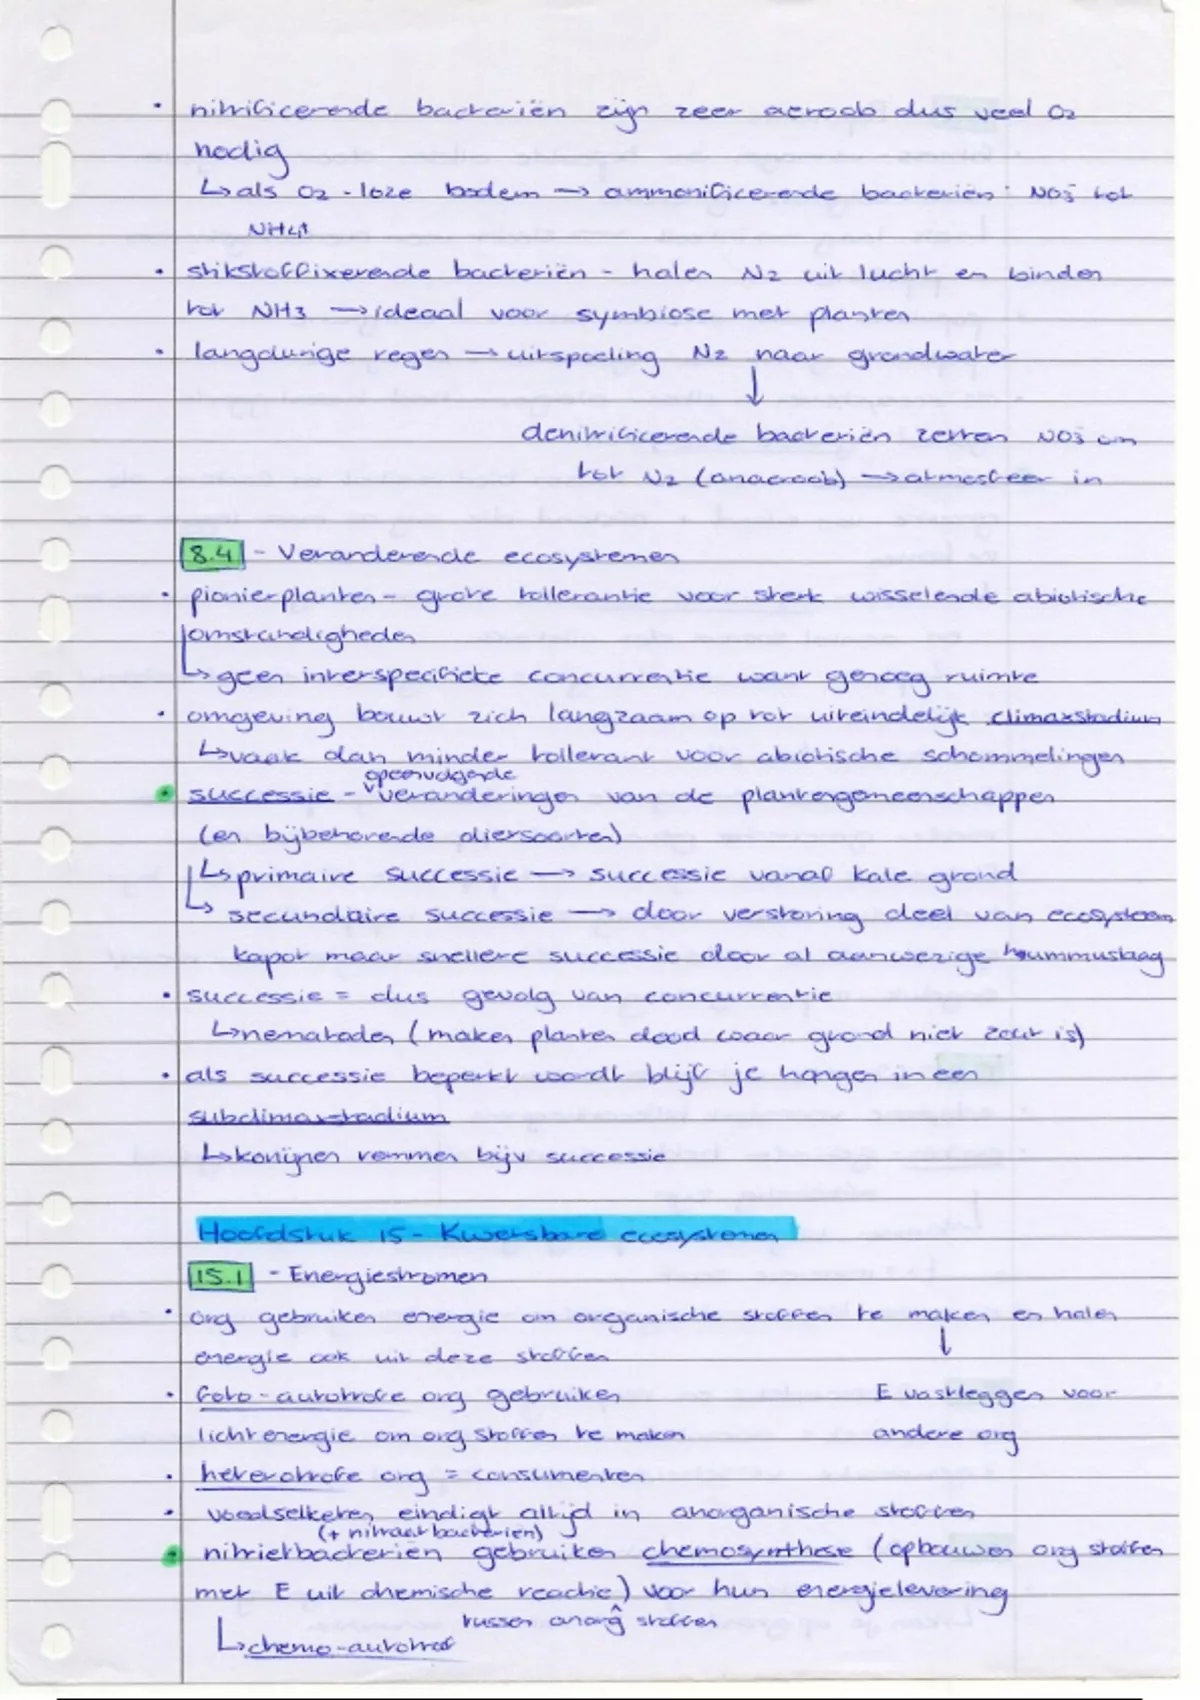 • nitrificerende bacteriën zijn zeer aeroob dus veel O2
nodig
↳ als O2-loze bodem → ammonificerende bacteriën: NO3⁻ tot
NH4⁺
• stikstoffixerende bacteriën - halen N2 uit lucht en binden
tot NH3 → ideaal voor symbiose met planten
• langdurige regen → uitspoeling N2 naar grondwater
↓
denitrificerende bacteriën zetten NO3⁻ om
tot N2 (anaeroob) → atmosfeer in
8.4 - Veranderende ecosystemen
• pionierplanten - grote tollerantie voor sterk wisselende abiotische
omstandigheden
↳ geen interspecifieke concurrentie want genoeg ruimte
• omgeving bouwt zich langzaam op tot uiteindelijk climaxstadium
↳ vaak dan minder tollerant voor abiotische schommelingen
opeenvolgende
• successie - ᵛveranderingen van de plantengemeenschappen
(en bijbehorende diersoorten)
↳ primaire successie → successie vanaf kale grond
↳ secundaire successie → door verstoring deel van ecosysteem
kapot maar snellere successie door al aanwezige hummuslaag
• successie = dus gevolg van concurrentie
↳ nematoden (maken planten dood waar grond niet zout is)
• als successie beperkt wordt blijf je hangen in een
subclimaxstadium
↳ konijnen remmen bijv successie
Hoofdstuk 15 - Kwetsbare ecosystemen
15.1 - Energiestromen
• org gebruiken energie om organische stoffen te maken en halen
energie ook uit deze stoffen ↓
• foto-autotrofe org gebruiken E vastleggen voor
lichtenergie om org stoffen te maken andere org
• heterotrofe org = consumenten
• voedselketen eindigt altijd in anorganische stoffen
(+ nitraatbacteriën)
• nitrietbacteriën gebruiken chemosynthese (opbouwen org stoffen
met E uit chemische reactie^) voor hun energielevering
tussen anorg stoffen
↳ chemo-autotroof